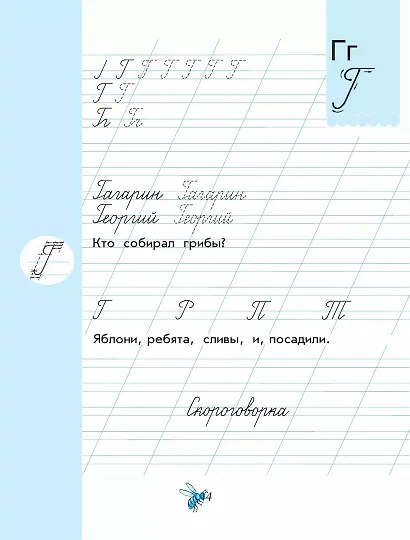 Гг
Г
Г Г Г Г Г Г
Г Г
Гг Гг
Гагарин Гагарин
Георгий Георгий
Кто собирал грибы?
Г
Г Р П Т
Яблони, ребята, сливы, и, посадили.
Скороговорка
4